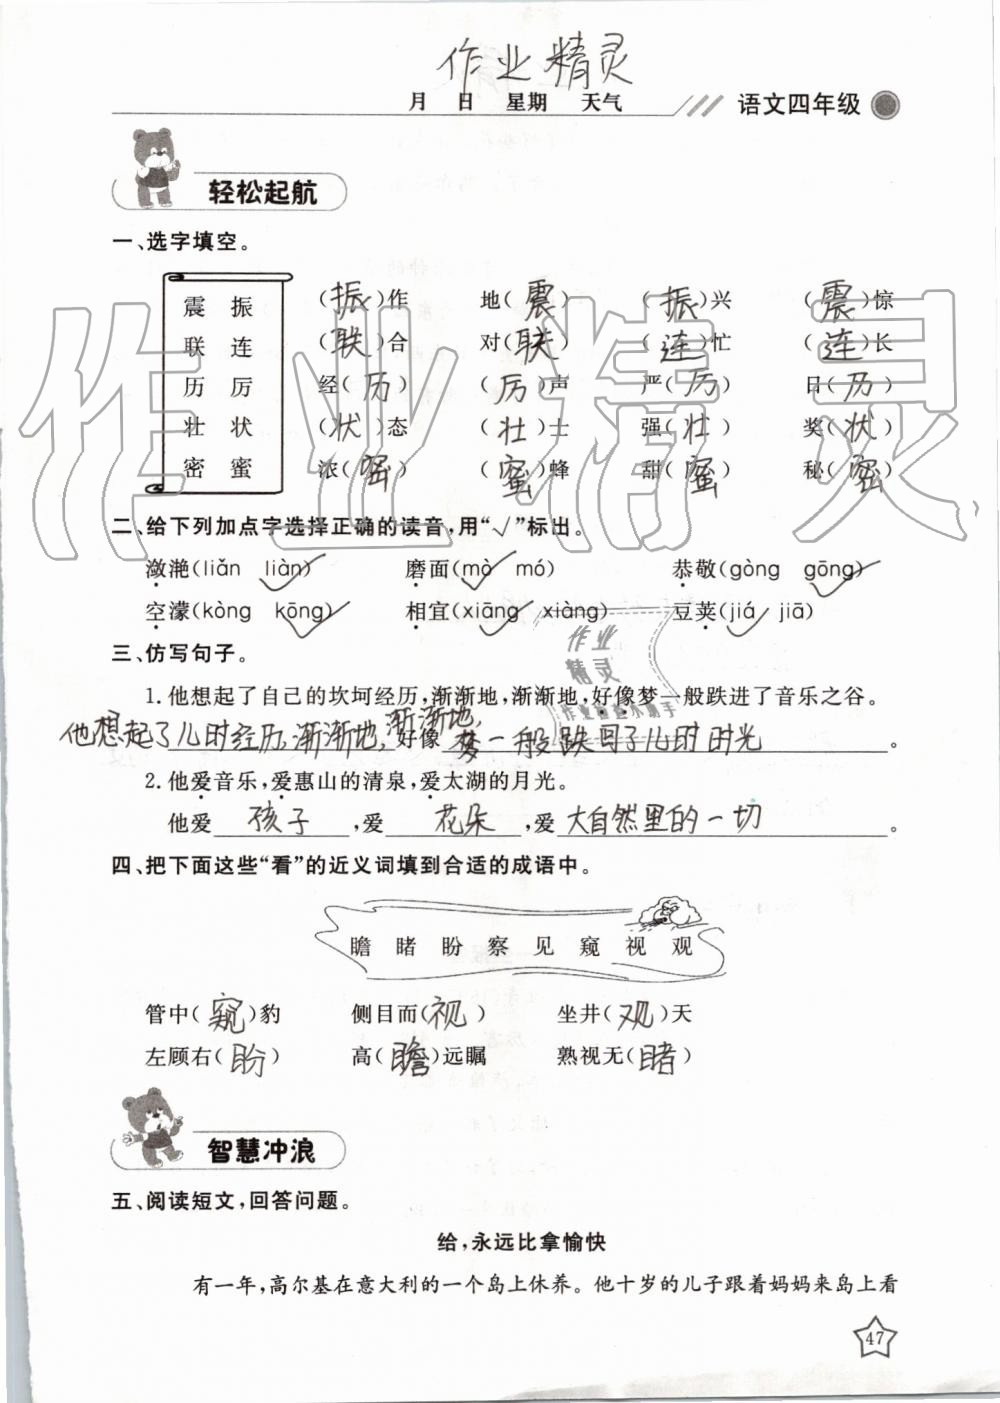 作业精灵
月 日 星期 天气 语文四年级
轻松起航
一、选字填空。
震 振 (振)作 地(震) (振)兴 (震)惊
联 连 (联)合 对(联) (连)忙 (连)长
历 厉 经(历) (厉)声 严(厉) 日(历)
壮 状 (状)态 (壮)士 强(壮) 奖(状)
密 蜜 浓(密) (蜜)蜂 甜(蜜) 秘(密)
二、给下列加点字选择正确的读音,用“√”标出。
潋滟(liǎn liàn) 磨面(mò mó) 恭敬(gòng gōng)
空濛(kòng kōng) 相宜(xiāng xiàng) 豆荚(jiá jiā)
三、仿写句子。
1.他想起了自己的坎坷经历,渐渐地,渐渐地,好像梦一般跌进了音乐之谷。
他想起了儿时经历,渐渐地,渐渐地,好像梦一般跌回了儿时时光。
2.他爱音乐,爱惠山的清泉,爱太湖的月光。
他爱孩子,爱花朵,爱大自然里的一切。
四、把下面这些“看”的近义词填到合适的成语中。
瞻 睹 盼 察 见 窥 视 观
管中(窥)豹 侧目而(视) 坐井(观)天
左顾右(盼) 高(瞻)远瞩 熟视无(睹)
智慧冲浪
五、阅读短文,回答问题。
给,永远比拿愉快
有一年,高尔基在意大利的一个岛上休养。他十岁的儿子跟着妈妈来岛上看
47
作业精灵
作业
精灵